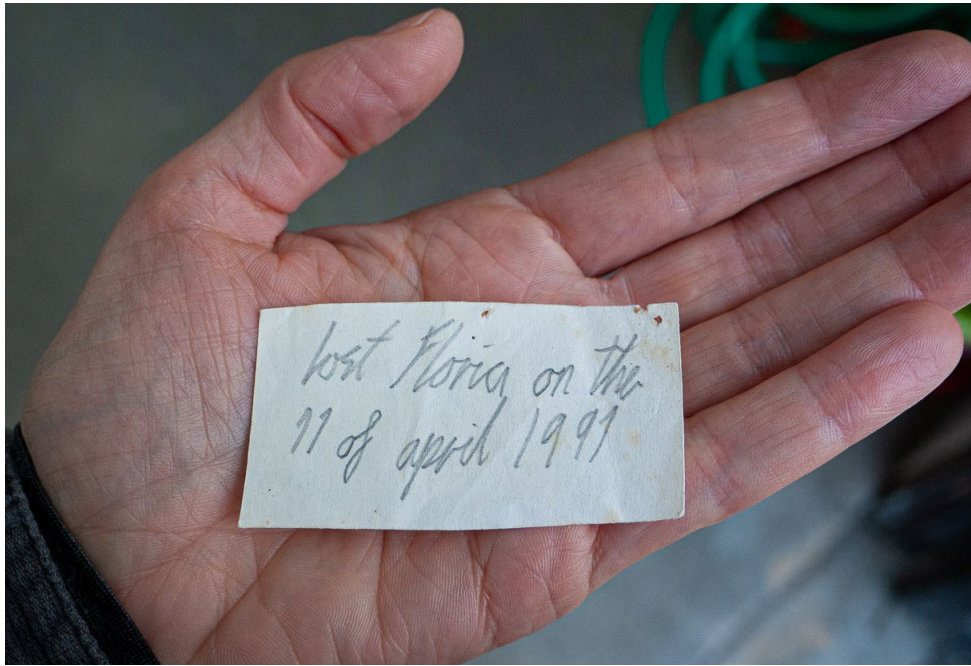 lost Florica on the
11 of april 1991